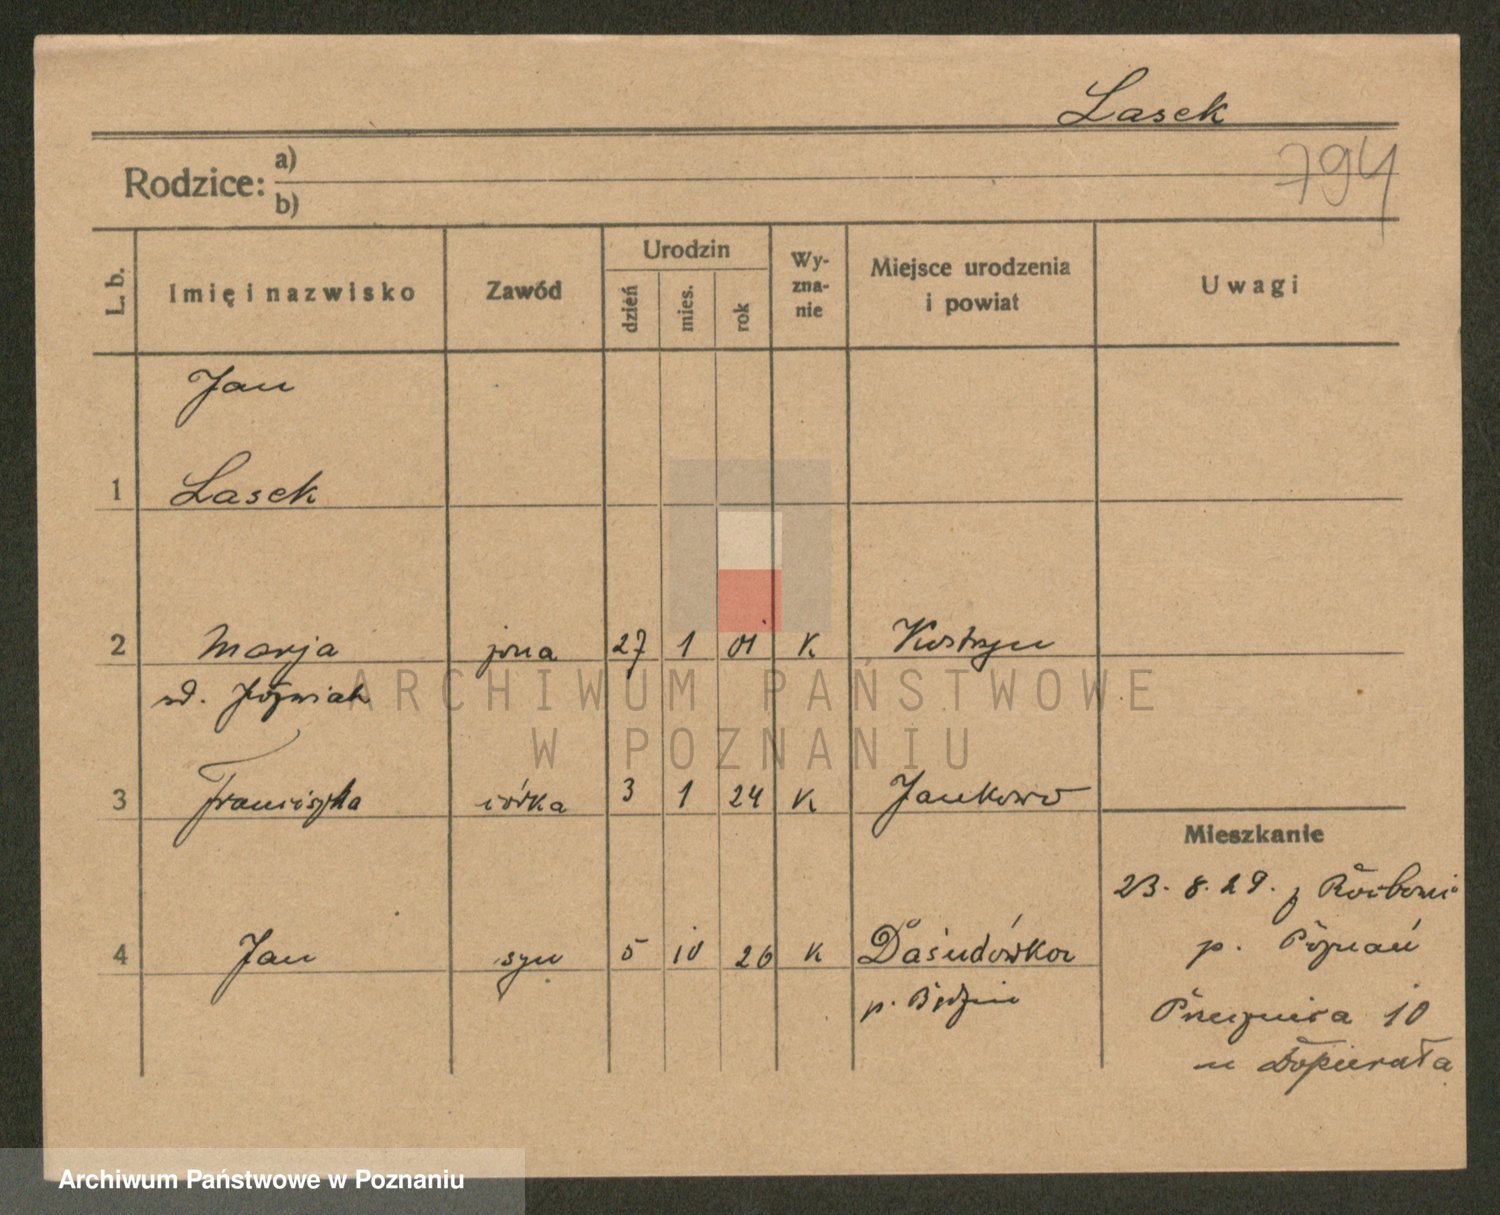 Lasek
794
Rodzice: a)
b)
L. b.
Imię i nazwisko
Zawód
Urodzin
dzień
mies.
rok
Wy-
zna-
nie
Miejsce urodzenia
i powiat
Uwagi
Jan
1 Lasek
2 Marja żona 27 1 01 K Kostrzyn
Woźniak
3 Franciszka córka 3 1 24 K Jankowo
Mieszkanie
23. 8. 29. z
4 Jan syn 5 10 26 K Dąsiudówka
p. Poznań
p. Będzin
10
u Dopierała
ARCHIWUM PAŃSTWOWE
W POZNANIU
Archiwum Państwowe w Poznaniu